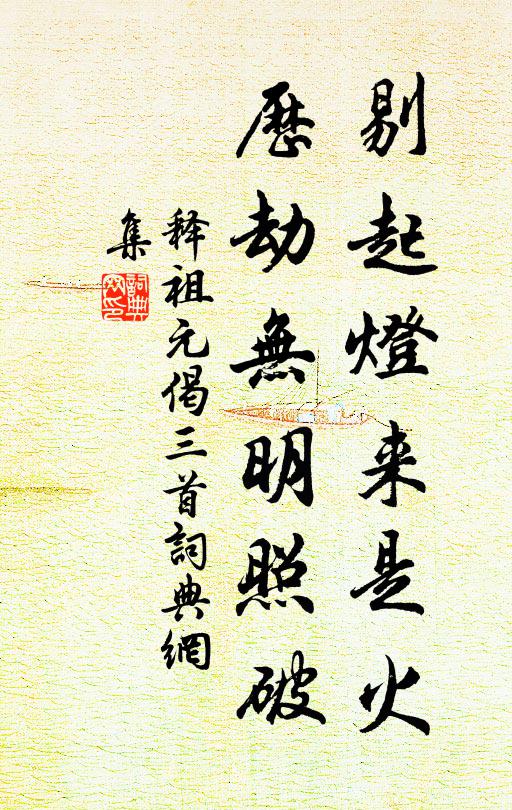 剔起燈来是火
歷劫無明照破
釋祖元偈三首詞典網
集
詞典
网印